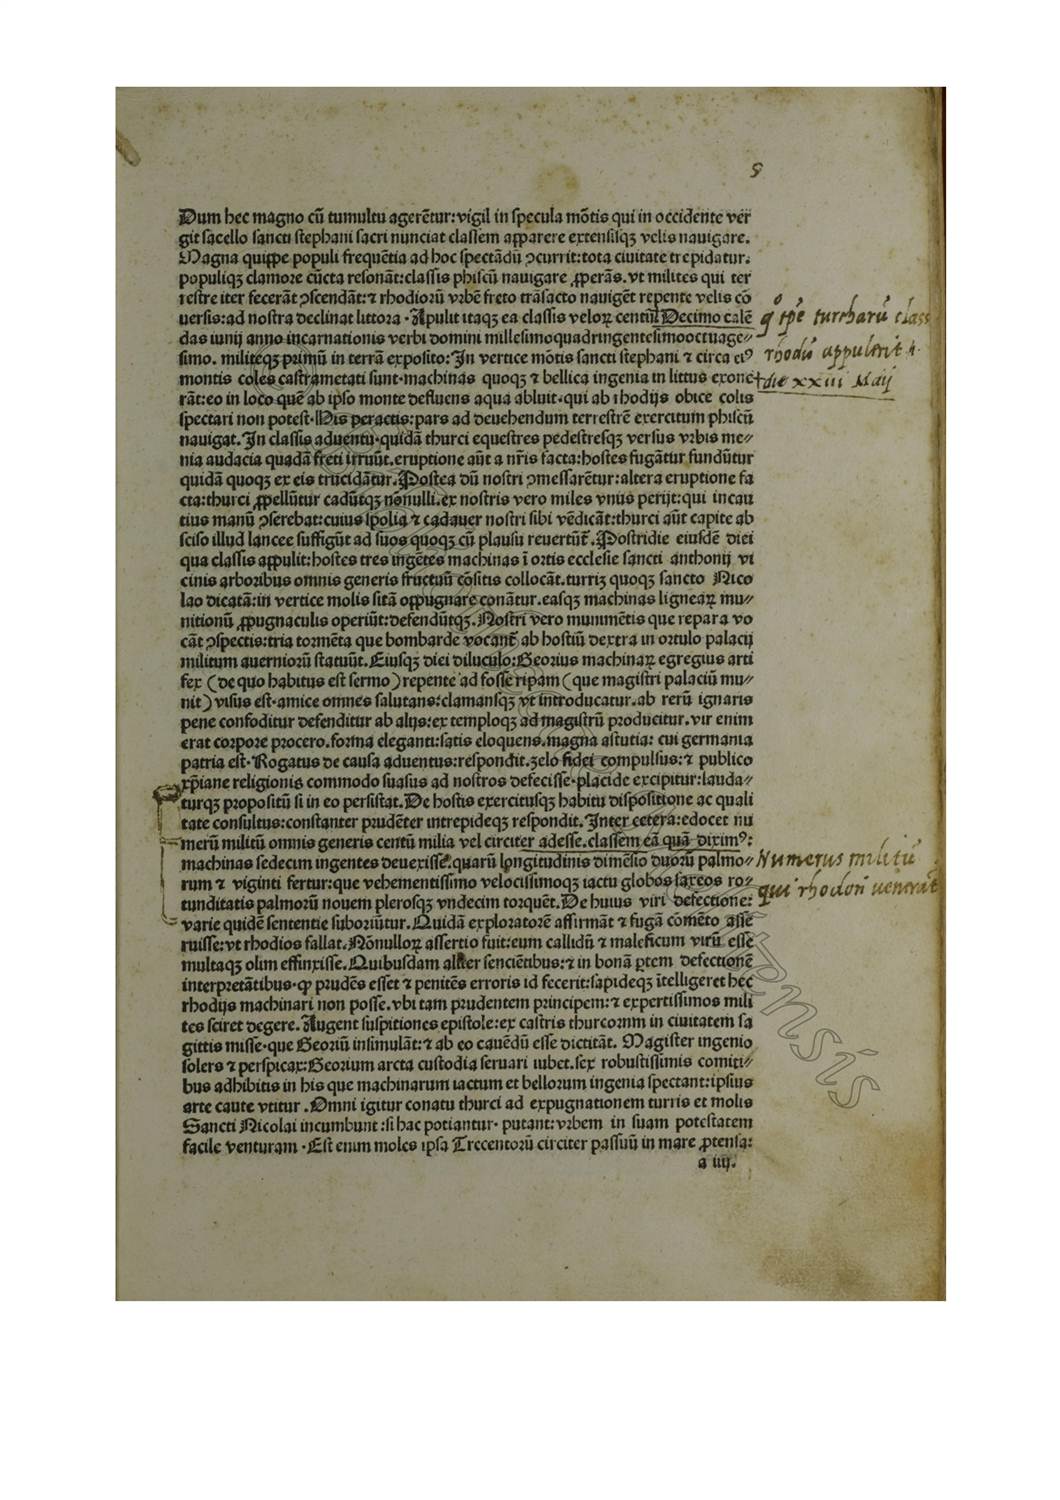 5
Dum hec magno cū tumultu agerētur:vigil in specula mōtis qui in occidente ver
git sacello sancti stephani sacri nunciat classem apparere extensisqꝫ velis nauigare.
Magna quippe populi frequētia ad hoc spectādū ꝯcurrit:tota ciuitate trepidatur.
populiqꝫ clamore cūcta resonāt:classis phiscū nauigare ꝓperās.vt milites qui ter
restre iter fecerāt ꝯscendāt:⁊ rhodiorū vrbē freto trāsacto nauigēt repente velis cō
versis:ad nostra declinat littora .Apulit itaqꝫ ea classis veloꝝ centū Decimo calē
das iunij anno incarnationis verbi domini millesimoquadringentesimooctuage//
simo. militēqꝫ primū in terrā exposito:In vertice mōtis sancti stephani ⁊ circa eiꝰ
montis coles castrametati sunt.machinas quoqꝫ ⁊ bellica ingenia in littus exone
rāt:eo in loco quē ab ipso monte defluens aqua abluit.qui ab rhodijs obice colis
spectari non potest.His peractis:pars ad deuehendum terrestrē exercitum phiscū
nauigat.In classis aduentu.quidā thurci equestres pedestresqꝫ versus vrbis me//
nia audacia quadā freti irruūt.eruptione aūt a nr̄is facta:hostes fugātur fundūtur
quidā quoqꝫ ex eis trucidātur.Postea dū nostri ꝯmessarētur:altera eruptione fa
cta:thurci ꝓpellūtur cadūtqꝫ nōnulli.ex nostris vero miles vnus perijt:qui incau
tius manū ꝯserebat:cuius spolia ⁊ cadauer nostri sibi vēdicāt:thurci aūt capite ab
sciso illud lancee suffigūt ad suos quoqꝫ cū plausu reuertūt̄.Postridie eiusdē diei
qua classis appulit:hostes tres ingētes machinas ī ortis ecclesie sancti anthonij vi
cinis arboribus omnis generis fructuū cōsitis collocāt.turriꝫ quoqꝫ sancto Nico
lao dicatā:in vertice molis sitā oppugnare conātur.easqꝫ machinas ligneaꝝ mu//
nitionū ꝓpugnaculis operiūt:defendūtqꝫ.Nostri vero munimētis que repara vo
cāt ꝯspectis:tria tormēta que bombarde vocant̄ ab hostiū dextra in ortulo palacij
militum auerniorū statuūt.Eiusqꝫ diei diluculo:Georius machinaꝝ egregius arti
fex (de quo habitus est sermo) repente ad fosse ripam (que magistri palaciū mu//
nit) visus est.amice omnes salutans:clamansqꝫ vt introducatur.ab rerū ignaris
pene confoditur defenditur ab alijs:ex temploqꝫ ad magistrū producitur.vir enim
erat corpore procero.forma eleganti:satis eloquens.magna astutia: cui germania
patria est.Rogatus de causa aduentus:respondit.zelo fidei compulsus:⁊ publico
xp̄iane religionis commodo suasus ad nostros defecisse.placide excipitur:lauda//
turqꝫ propositū si in eo persistat.De hostis exercitusqꝫ habitu dispositione ac quali
tate consultus:constanter prudēter intrepideqꝫ respondit.Inter cetera:edocet nu
merū militū omnis generis centū milia vel circiter adesse.classem eā quā diximꝰ:
machinas sedecim ingentes deuexisse.quarū longitudinis dimēsio duorū palmo//
rum ⁊ viginti fertur:que vehementissimo velocissimoqꝫ iactu globos saxeos ro//
tunditatis palmorū nouem plerosqꝫ vndecim torquēt.De huius viri defectione:
varie quidē sententie suboriūtur.Quidā exploratorē affirmāt ⁊ fugā comēto asse
ruisse:vt rhodios fallat.Nōnulloꝝ assertio fuit:eum callidū ⁊ maleficum virū esse
multaqꝫ olim effinxisse.Quibusdam aliter senciētibus:⁊ in bonā ꝑtem defectionē
interpretātibus.ꝙ prudēs esset ⁊ penitēs erroris id fecerit:sapideqꝫ ītelligeret hec
rhodijs machinari non posse.vbi tam prudentem principem:⁊ expertissimos mili
tes sciret degere.Augent suspitiones epistole:ex castris thurcorum in ciuitatem sa
gittis misse.que Georiū insimulāt:⁊ ab eo cauēdū esse dictitāt. Magister ingenio
solers ⁊ perspicax:Georium arcta custodia seruari iubet.sex robustissimis comiti//
bus adhibitis in his que machinarum iactum et bellorum ingenia spectant:ipsius
arte caute vtitur .Omni igitur conatu thurci ad expugnationem turris et molis
Sancti Nicolai incumbunt :si hac potiantur. putant:vrbem in suam potestatem
facile venturam .Est enim moles ipsa Trecentorū circiter passuū in mare ꝓtensa:
a iiij.
turcharū class
rhodū appulerit
die xxiii Maij
Numerus militū
qui rhodon venerāt